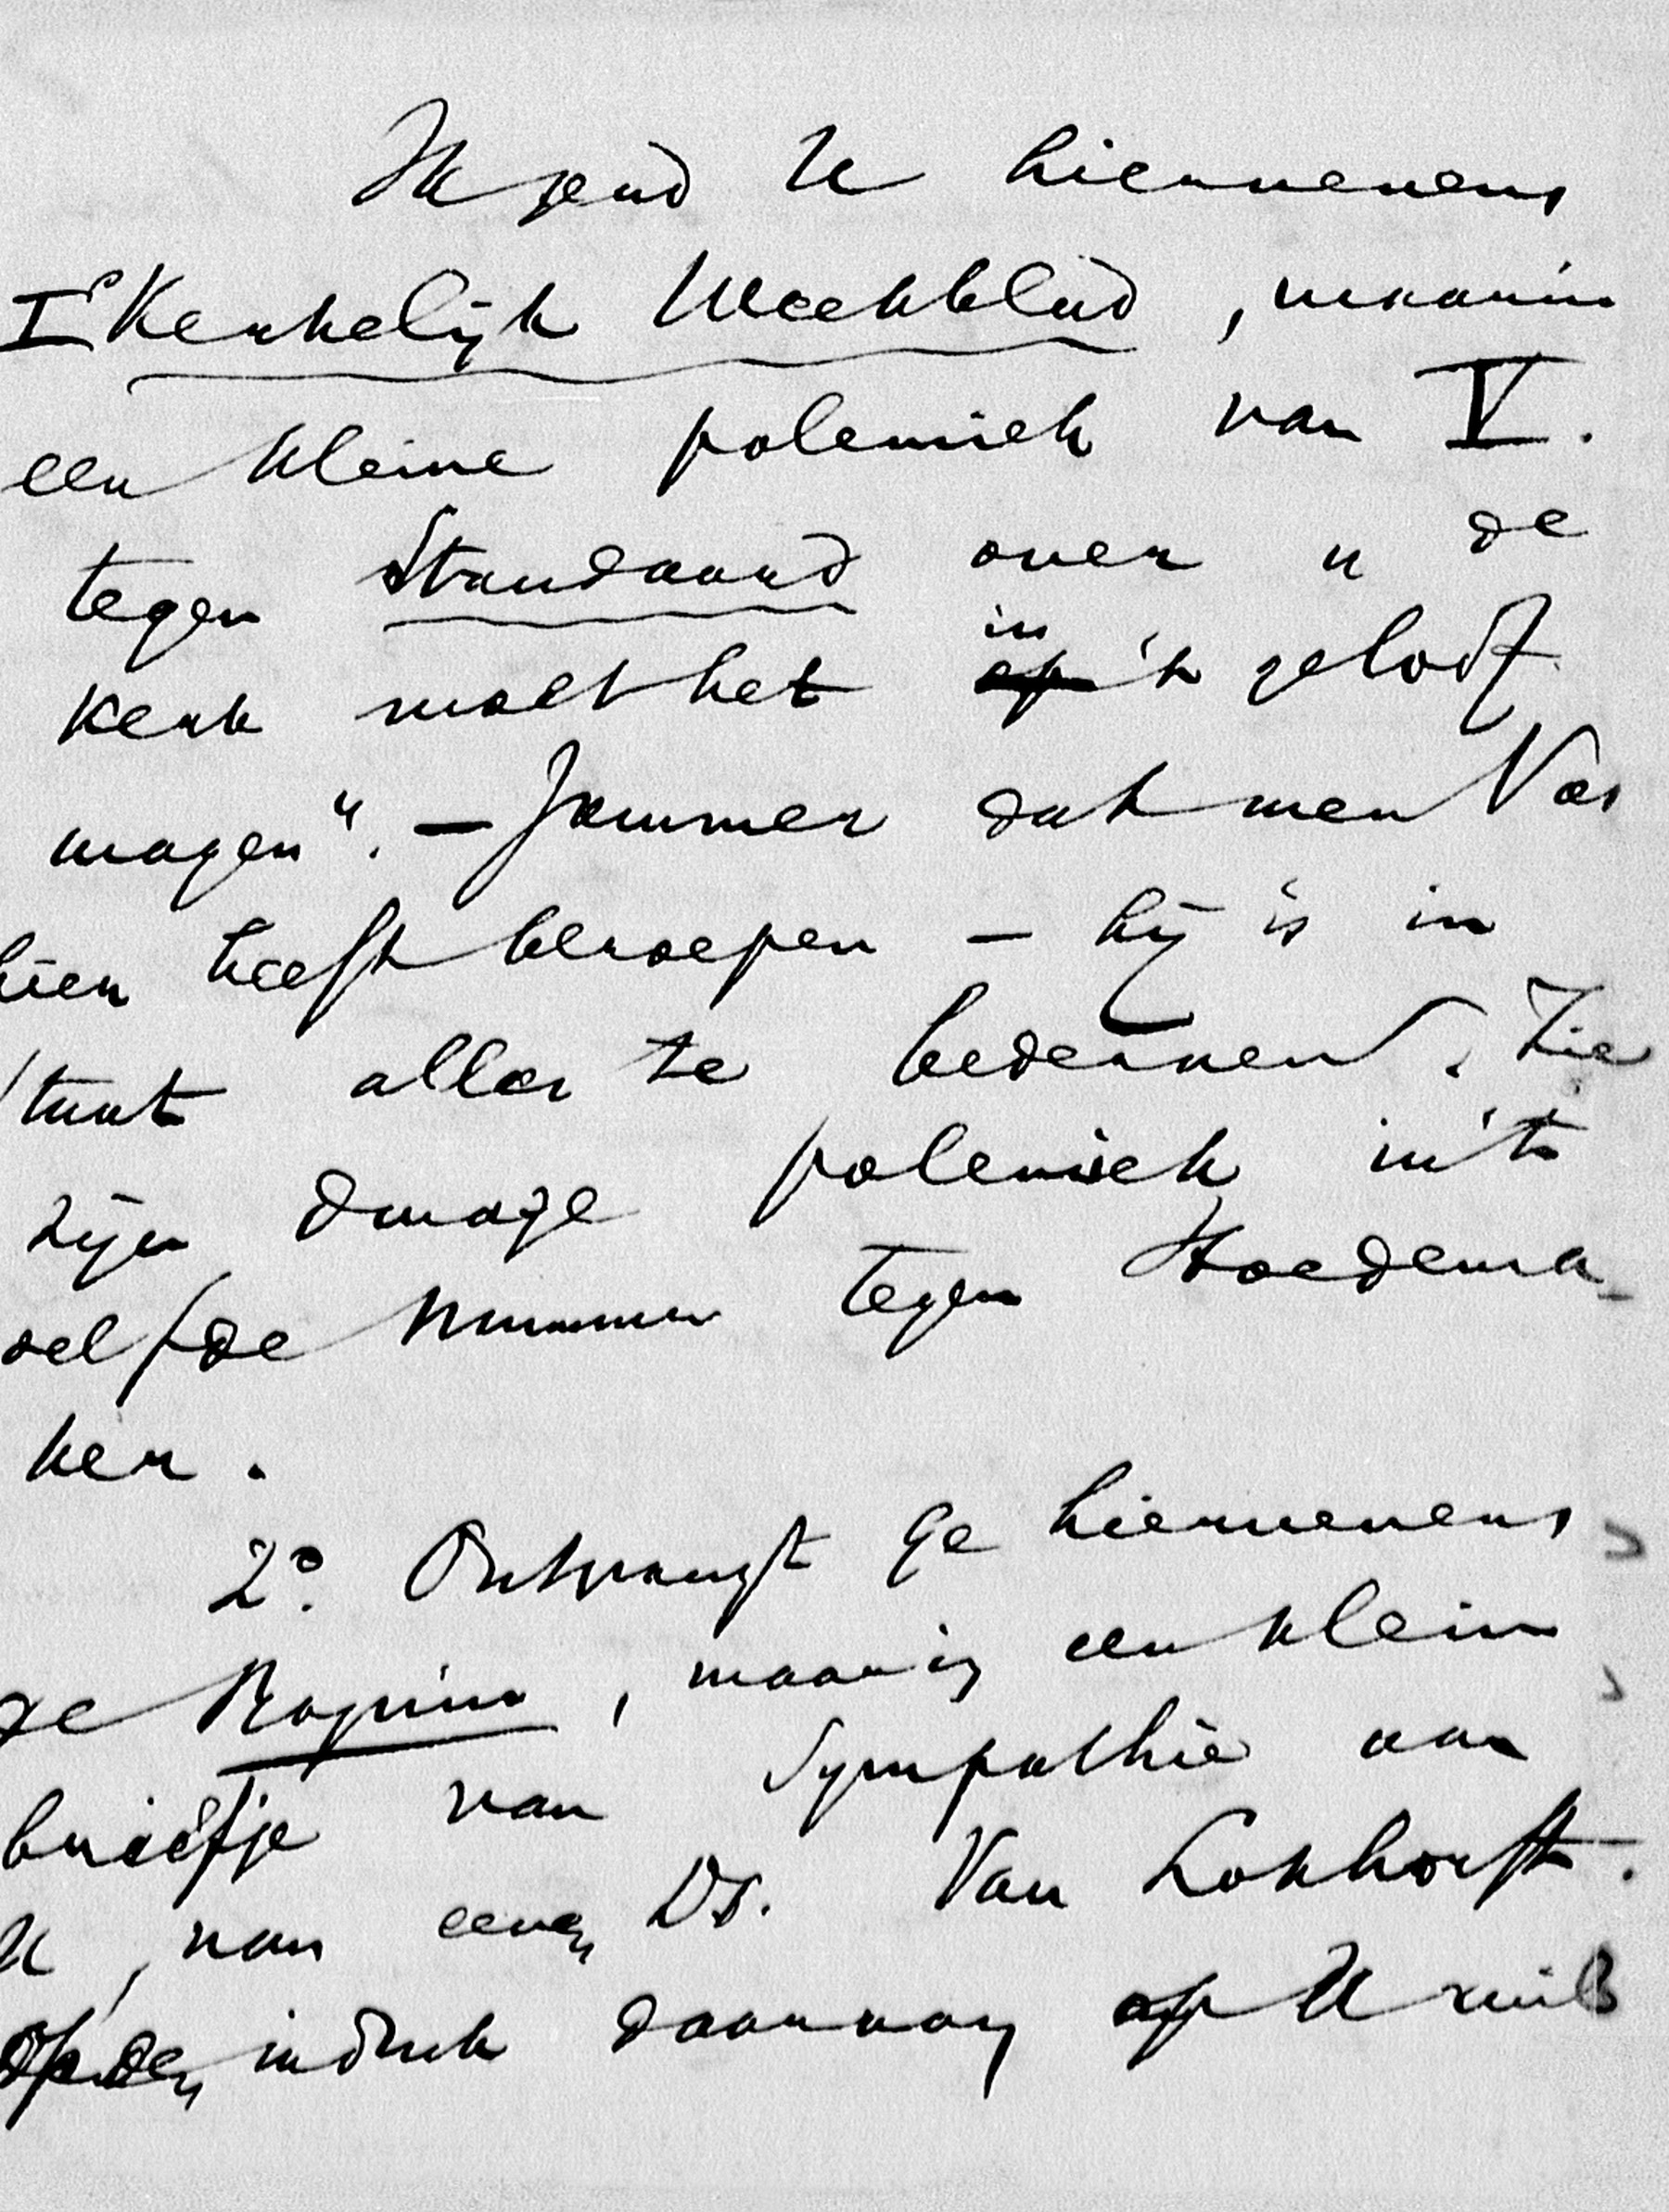 Ik zend U hiernevens
I° Kerkelijk Weekblad, waarin
een kleine polemiek van V.
tegen Standaard over „de
kerk moet het in 't geloof
wagen". – Jammer dat men Vos
hier heeft beroepen – hij is in
staat alles te bederven. Zie
zijn dwaze polemiek in 't
zelfde nummer tegen Hoedema-
ker.
2°. Ontvangt ge hiernevens
ze, waarin een klein
briefje van sympathie aan
U, van eenen Ds. Van Lokhorst.
Op den indruk daarvan op U